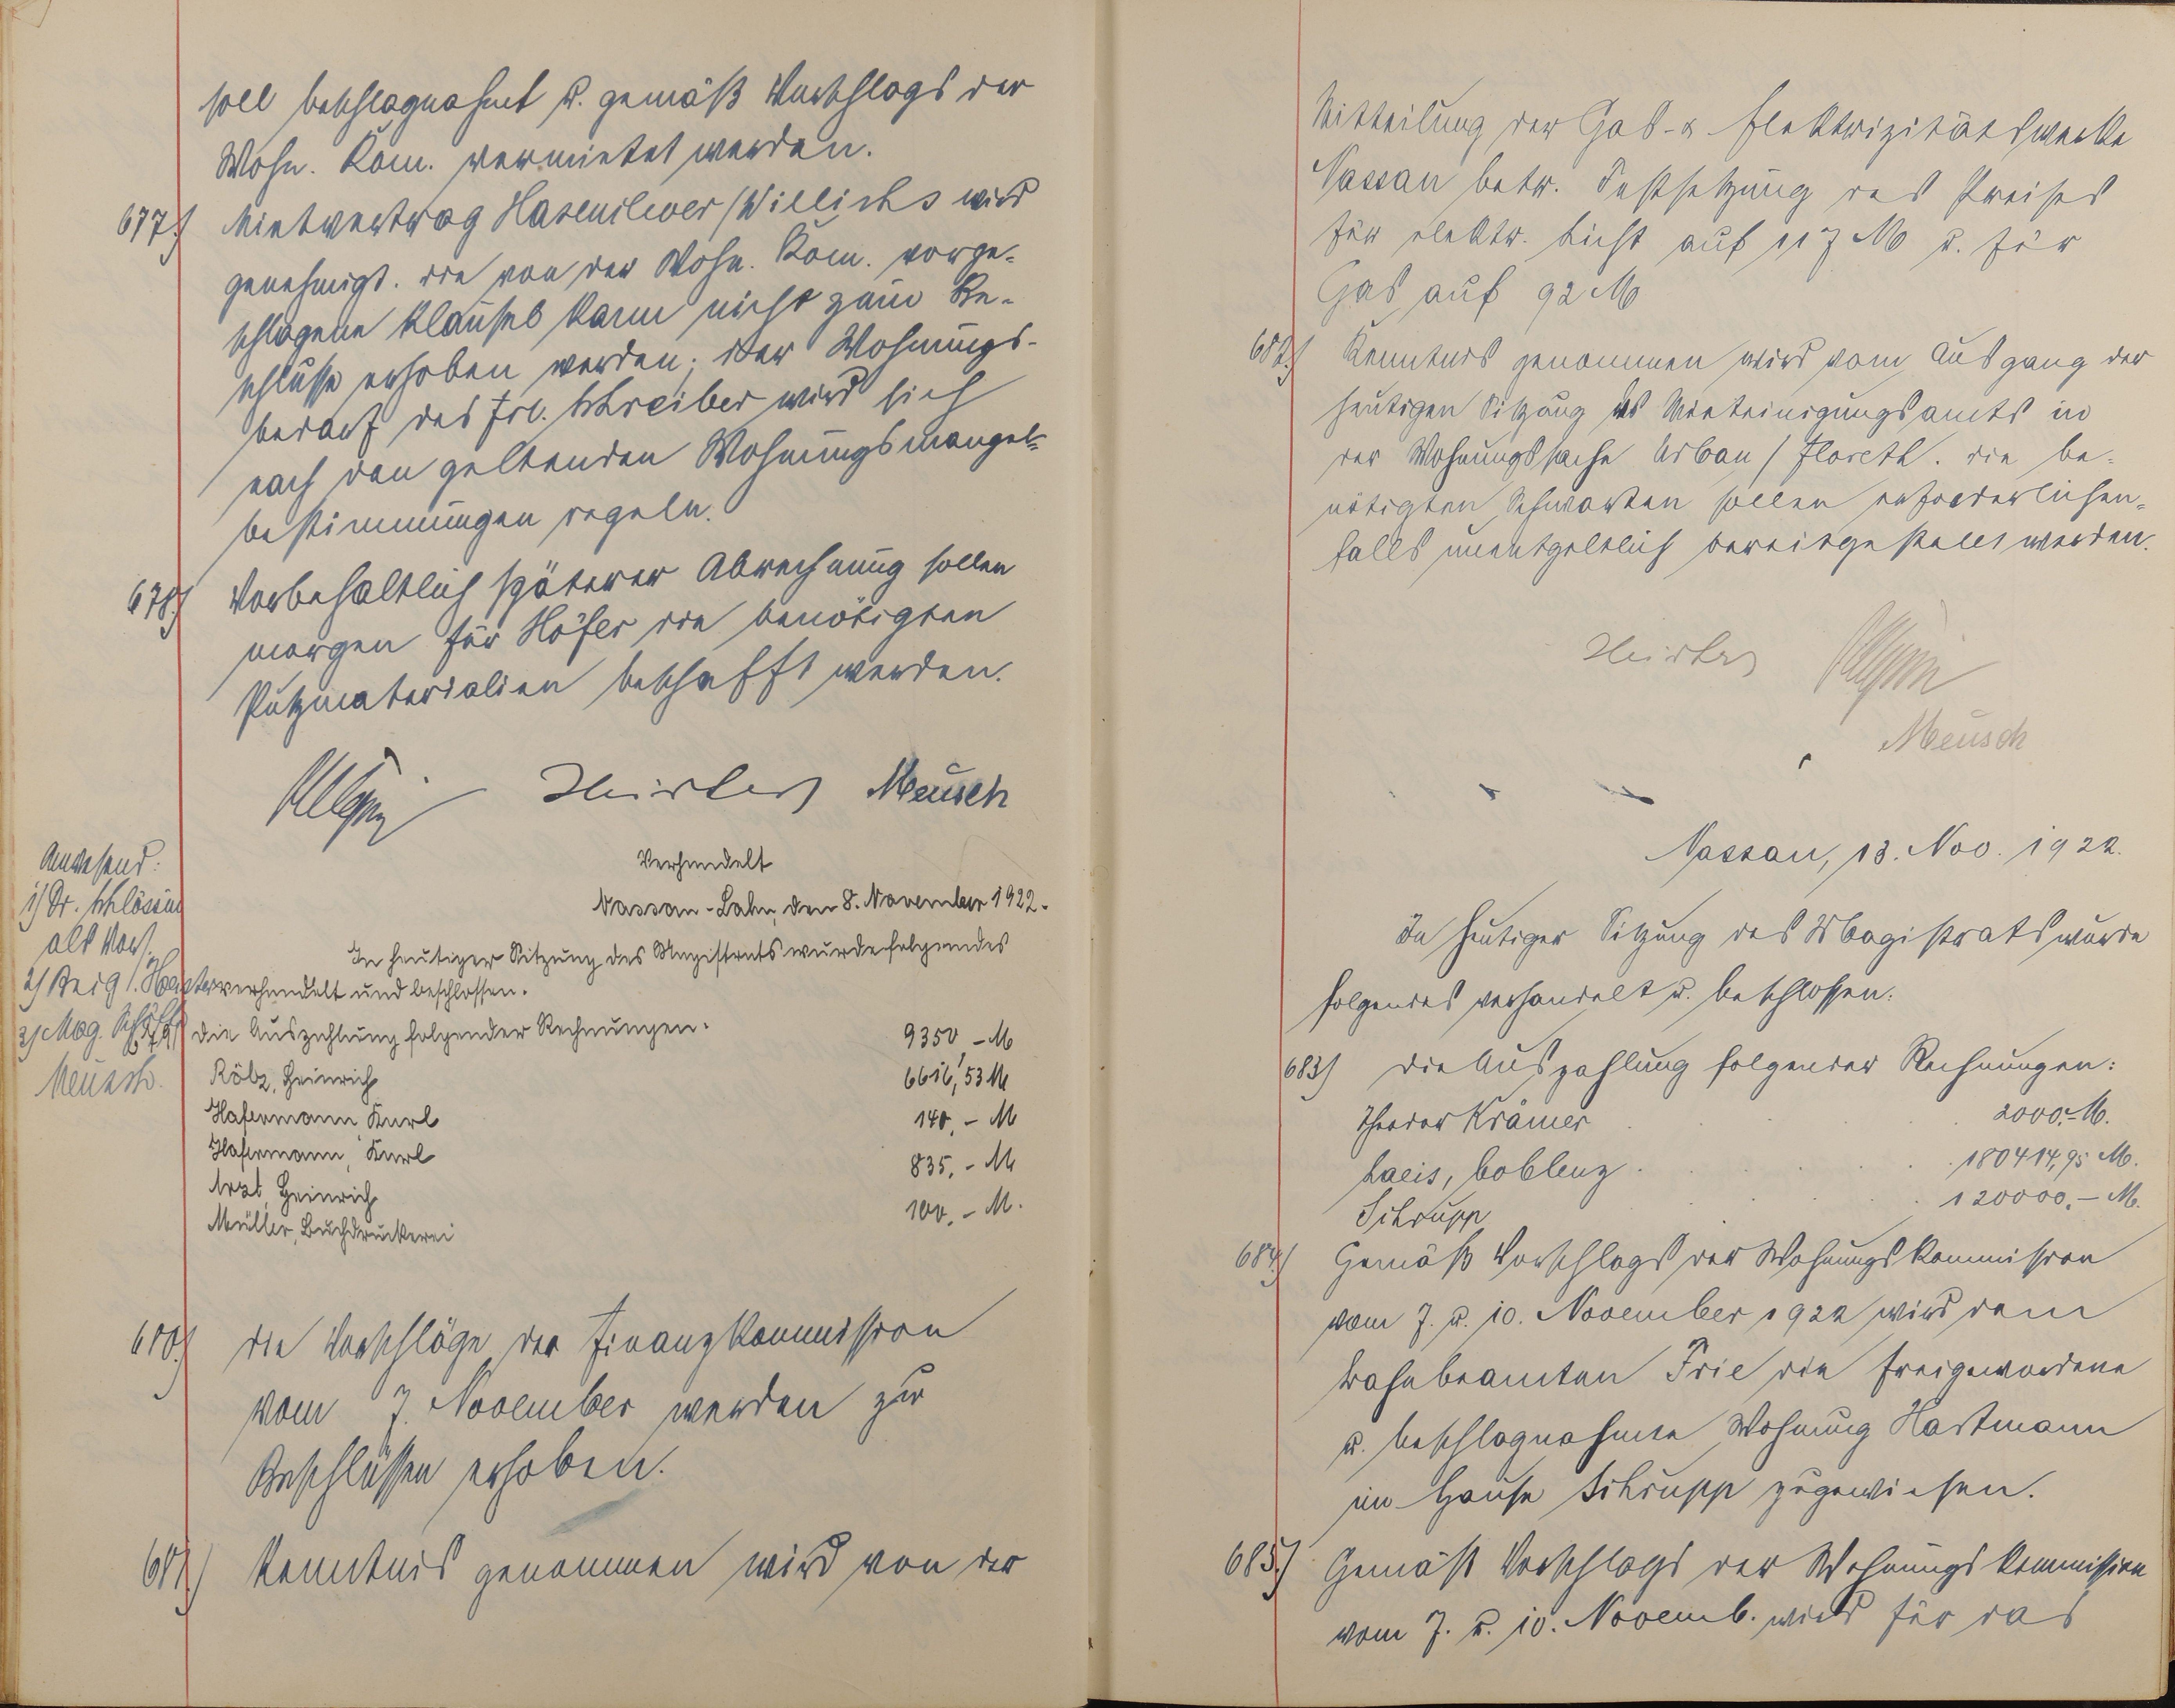 soll beschlagnahmt u. gemäß Vorschlags der
Wohn. Kom. vermietet werden.
677.) Mietvertrag Hasenclever / Willichs wird
genehmigt. die von der Wohn. Kom. vorge-
schlagene Klausel kann nicht zum Be-
schlusse erhoben werden; der Wohnungs-
bedarf des Frl. Schreiber wird sich
nach den geltenden Wohnungsmangel-
bestimmungen regeln.
678.) Vorbehaltlich späterer Abrechnung sollen
morgen für Höfer die benötigten
Putzmaterialien beschafft werden.
Meusch
Verhandelt
Nassau-Lahn, den 8. November 1922.
Anwesend:
1) Dr.
als Vors.
2) Beig.
3) Mag. Schöffe
Meusch.
In heutiger Sitzung des Magistrats wurde folgendes
verhandelt und beschlossen.
679) die Auszahlung folgender Rechnungen.
Röbz, Heinrich 9350 - M
Hafermann Karl 6616,53 M
Hafermann, Karl 140,- M
Arzt, Heinrich 835,- M
Müller, Buchdruckerei 100,- M.
680.) die Vorschläge der Finanzkommission
vom 7. November werden zu
Beschlüssen erhoben.
681.) Kenntnis genommen wird von der
Mitteilung der Gas- & Elektrizitätswerke
Nassau betr. Festsetzung des Preises
für elektr. Licht auf 117 M u. für
Gas auf 92 M
682.) Kenntnis genommen wird vom Ausgang der
heutigen Sitzung des Mieteinigungsamts in
der Wohnungssache Urban / Floreth. die be-
nötigten Schwarten sollen erforderlichen-
falls unentgeltlich bereitgestellt werden.
Meusch
Nassau, 13. Nov. 1922.
In heutiger Sitzung des Magistrats wurde
folgendes verhandelt u. beschlossen:
683) die Auszahlung folgender Rechnungen:
Theodor Krämer 2000,- M.
Laeis, Coblenz 180414,95 M.
Schrupp 120000,- M.
684.) Gemäß Vorschlags der Wohnungskommission
vom 7. u. 10. November 1922 wird dem
Bahnbeamten Frie die freigewordene
u. beschlagnahmte Wohnung Hartmann
im Hause Schrupp zugewiesen.
685.) Gemäß Vorschlags der Wohnungskommission
vom 7. u. 10. Novemb. wird für das